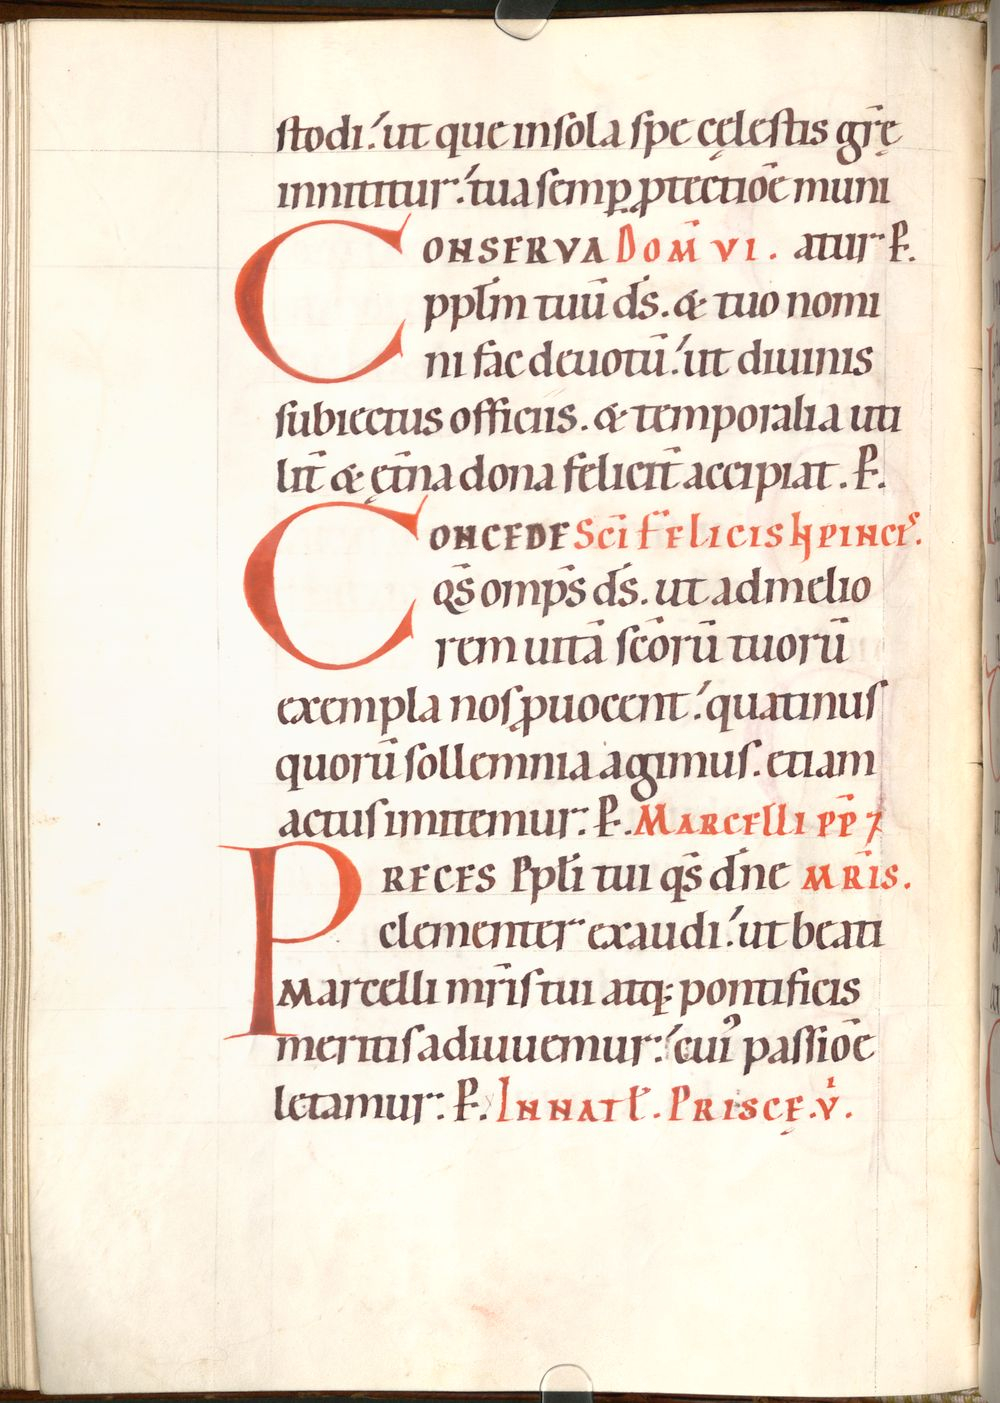 stodi. ut que in sola spe cęlestis gr̄ę
innititur. tua semꝑ ꝓtectiōe muni
CONSERVA DOM̄ VI. atur ꝑ.
ppl̄m tuū ds̄. & tuo nomi
ni fac deuotū. ut diuinis
subiectus officiis. & temporalia uti
lit̄ & ęt̄na dona felicit̄ accipiat. ꝑ.
CONCEDE SC̄I FELICIS IN PINCIS.
qs̄ omps̄ ds̄. ut ad melio
rem uitā sc̄orū tuorū
exempla nos ꝓuocent. quatinus
quorū sollemnia agimus. etiam
actus imitemur. ꝑ. MARCELLI PP̄ ⁊
PRECES Ppl̄i tui qs̄ dn̄e MR̄IS.
clementer exaudi. ut beati
Marcelli mr̄is tui atq; pontificis
meritis adiuuemur. cuiꝰ passiōe
letamur. ꝑ. IN NATL̄. PRISCĘ. V̊.